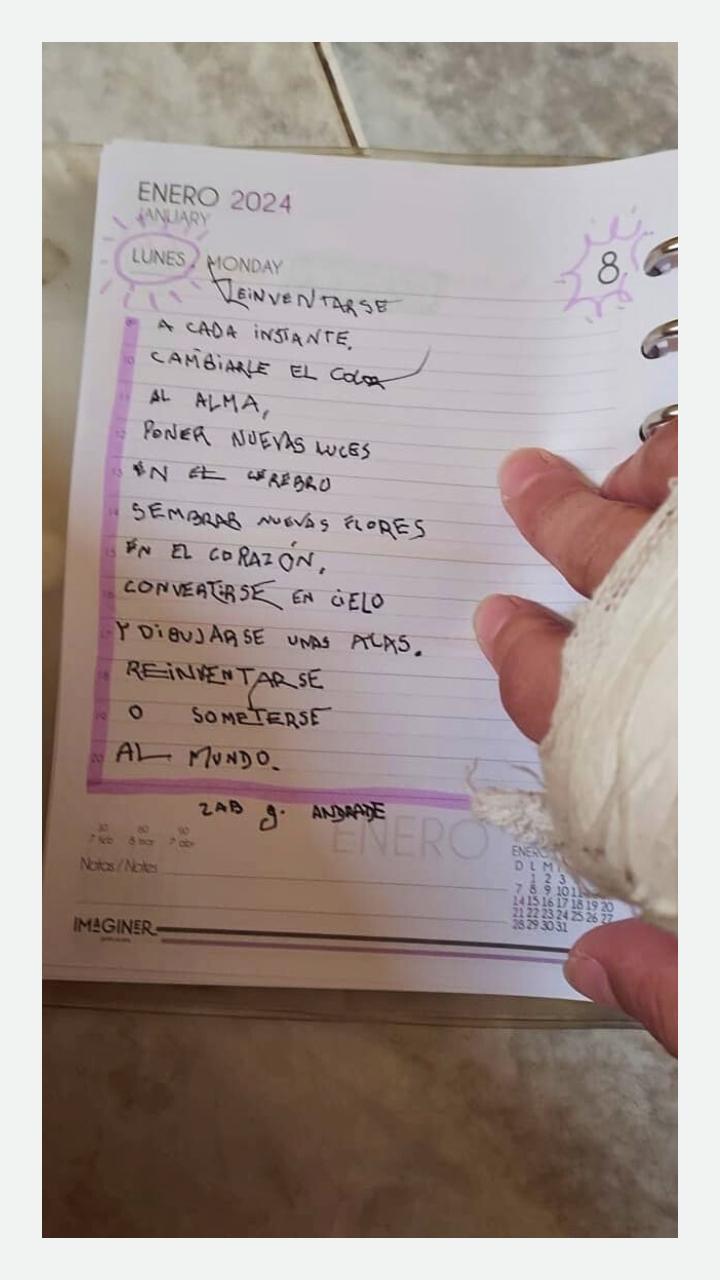 ENERO 2024
JANUARY
LUNES MONDAY
8
REINVENTARSE
A CADA INSTANTE.
CAMBIARLE EL COLOR
AL ALMA,
PONER NUEVAS LUCES
EN EL CEREBRO
SEMBRAR NUEVAS FLORES
EN EL CORAZÓN,
CONVERTIRSE EN CIELO
Y DIBUJARSE UNAS ALAS.
REINVENTARSE
O SOMETERSE
AL MUNDO.
ZAB G. ANDRADE
ENERO
30 60 90
7 feb 8 mar 7 abr
Notas / Notes
ENERO
D L M
1 2 3
7 8 9 10 11
14 15 16 17 18 19 20
21 22 23 24 25 26 27
28 29 30 31
IMAGINER